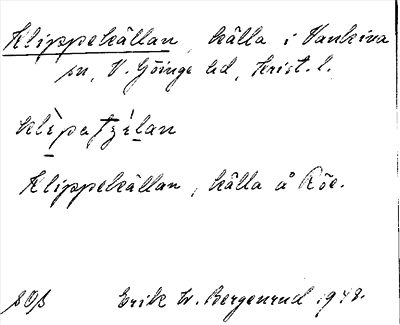 Klippekällan, källa i Vankiva
sn, V. Göinge hd, Krist. l.
klìpatɟílan
Klippekällan, källa å Röe.
SOB Erik W. Bergenrud 1948.